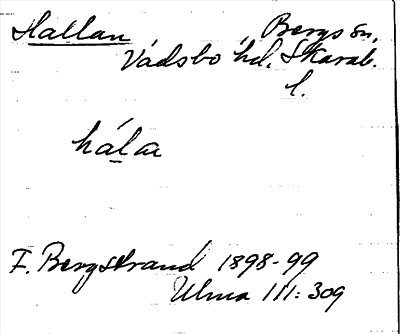 Hallan, Bergs sn,
Vadsbo hd. Skarab.
l.
hála
F. Bergstrand 1898-99
Ulma 111:309